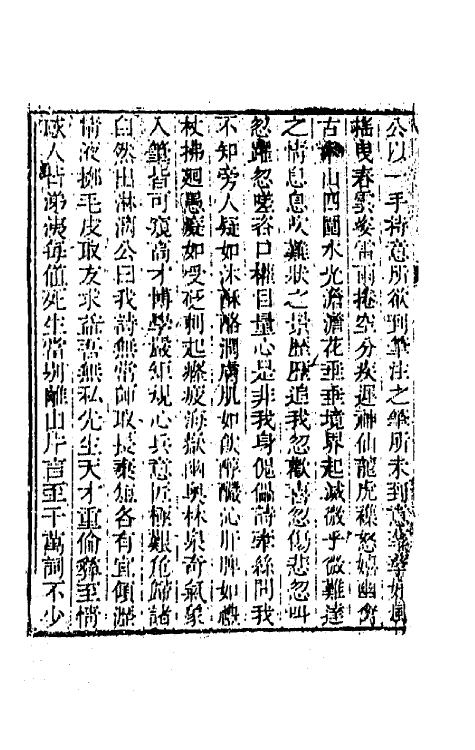 公以一手持意所欲到筆注之筆所未到意
搖曳春雲姿雷雨捲空分疾遲神仙龍虎襍怒嬉幽窗
古山四圍水光澹澹花垂垂境界起滅微乎微難達
之情息息吹難狀之景歷歷追我忽歡喜忽傷悲忽叫
忽躍忽嗟咨口權目量心是非我身傀儡詩牽絲問我
不知旁人疑如沐酥酪潤膚肌如飲醇醲沁肝脾如禮
杖拂迴愚癡如受砭刺起瘵疲海嶽幽奥林泉奇氣象
入筆皆可窺高才博學嚴矩規心兵意匠極艱危歸諸
自然出淋漓公曰我詩無常師取長棄短各有宜傾瀝
情液擲毛皮取友求益吾無私先生天才重倫彝至情
感人皆涕洟每值死生當别離山片言至千萬詞不少